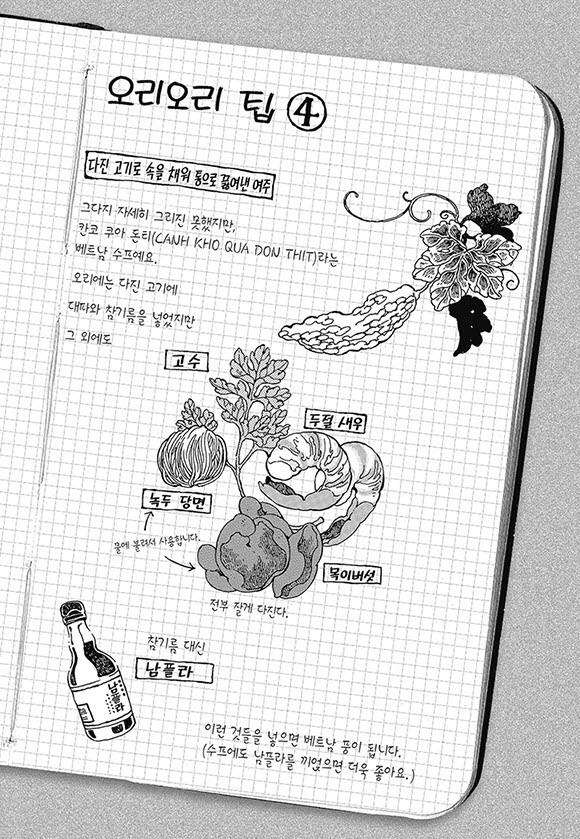 오리오리 팁 ④
다진 고기로 속을 채워 통으로 끓여낸 여주
그다지 자세히 그리진 못했지만,
칸코 쿠아 돈티(CANH KHO QUA DON THIT)라는
베트남 수프예요.
오리에는 다진 고기에
대파와 참기름을 넣었지만
그 외에도
고수
두절 새우
녹두 당면
물에 불려서 사용합니다.
목이버섯
전부 잘게 다진다.
참기름 대신
남플라
남플라
이런 것들을 넣으면 베트남 풍이 됩니다.
(수프에도 남플라를 끼얹으면 더욱 좋아요.)